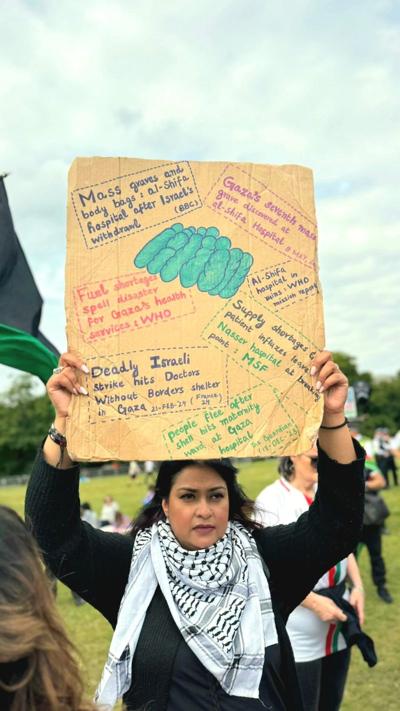 Mass graves and
body bags: al-Shifa
hospital after Israel's
withdrawl (BBC)
Gaza's seventh mass
grave discovered at
al-Shifa Hospital
Fuel shortages
spell disaster
for Gaza's health
services: WHO
Al-Shifa
hospital in
ruins: WHO
mission report
Supply shortages &
patient influxes leave
Nasser hospital at breaking
point MSF
Deadly Israeli
strike hits Doctors
Without Borders shelter
in Gaza 21-FEB-24 (France 24
people flee after
shell hits maternity
ward at Gaza
hospital